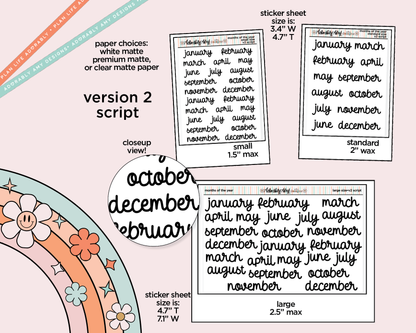 PLAN LIFE ADORABLY! ADORABLY AMY DESIGNS! PLAN LIFE ADORABLY!
ADORABLY AMY DESIGNS! PLAN LIFE ADORABLY! ADORABLY AMY DESIGNS!
paper choices:
white matte
premium matte,
or clear matte paper
version 2
script
closeup
view!
october
december
february
months of the year
january february
march april may
june july august
september october
november december
january february
march april may
june july august
september october
november december
small
1.5" max
sticker sheet
size is:
3.4" W
4.7" T
months of the year
january march
february april
may september
august october
july november
june december
standard
2" wax
months of the year
large size v2 script
january february march
april may june july august
september october november
december january february
march april may june july
august september october
november december
large
2.5" max
sticker sheet
size is:
4.7" T
7.1" W